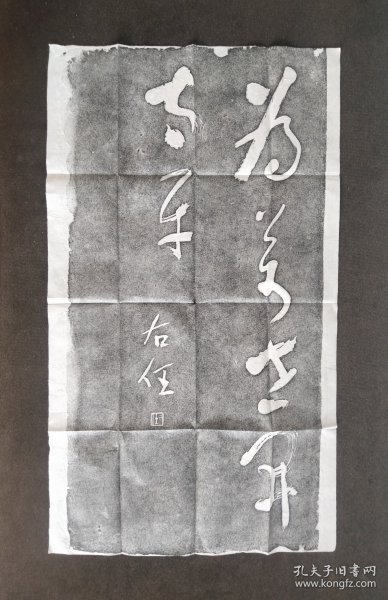 为万世开
太平
右任
孔夫子旧书网
www.kongfz.com